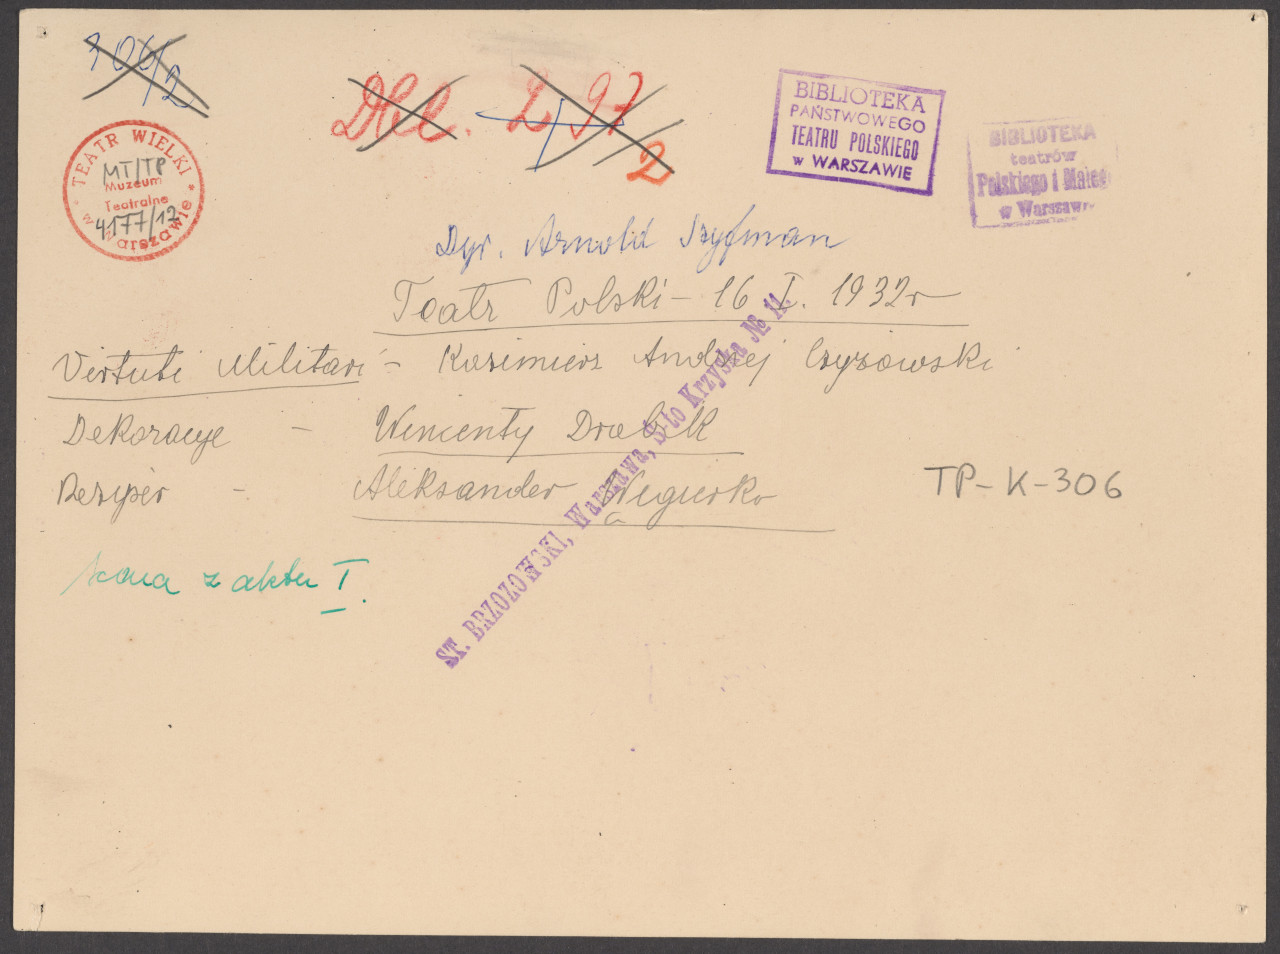 306/2
Dkl. 2/97/2
2
TEATR WIELKI
MT/TP
Muzeum
Teatralne
4177/12
w Warszawie
BIBLIOTEKA
PAŃSTWOWEGO
TEATRU POLSKIEGO
w WARSZAWIE
BIBLIOTEKA
teatrów
Polskiego i Małego
w Warszawie
Dyr. Arnold Szyfman
Teatr Polski - 16 I. 1932 r
Virtuti Militari - Kazimierz Andrzej Czyzowski
Dekoracje - Wincenty Drabik
Reżyser - Aleksander Węgierko
TP-K-306
Scena z aktu I.
ST. BRZOZOWSKI, Warszawa, S-to Krzyska № 11.